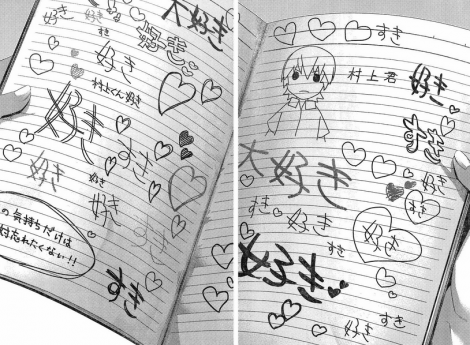 大好き
好き
好き
好き
すき
好き
村上くん好き
好き
すき
好き
好き
好き
の気持ちだけは
対忘れたくない!!
すき
すき
村上君
好き
好き
大好き
好き
すき
すき
好き
好き
すき
好き
すき
好き